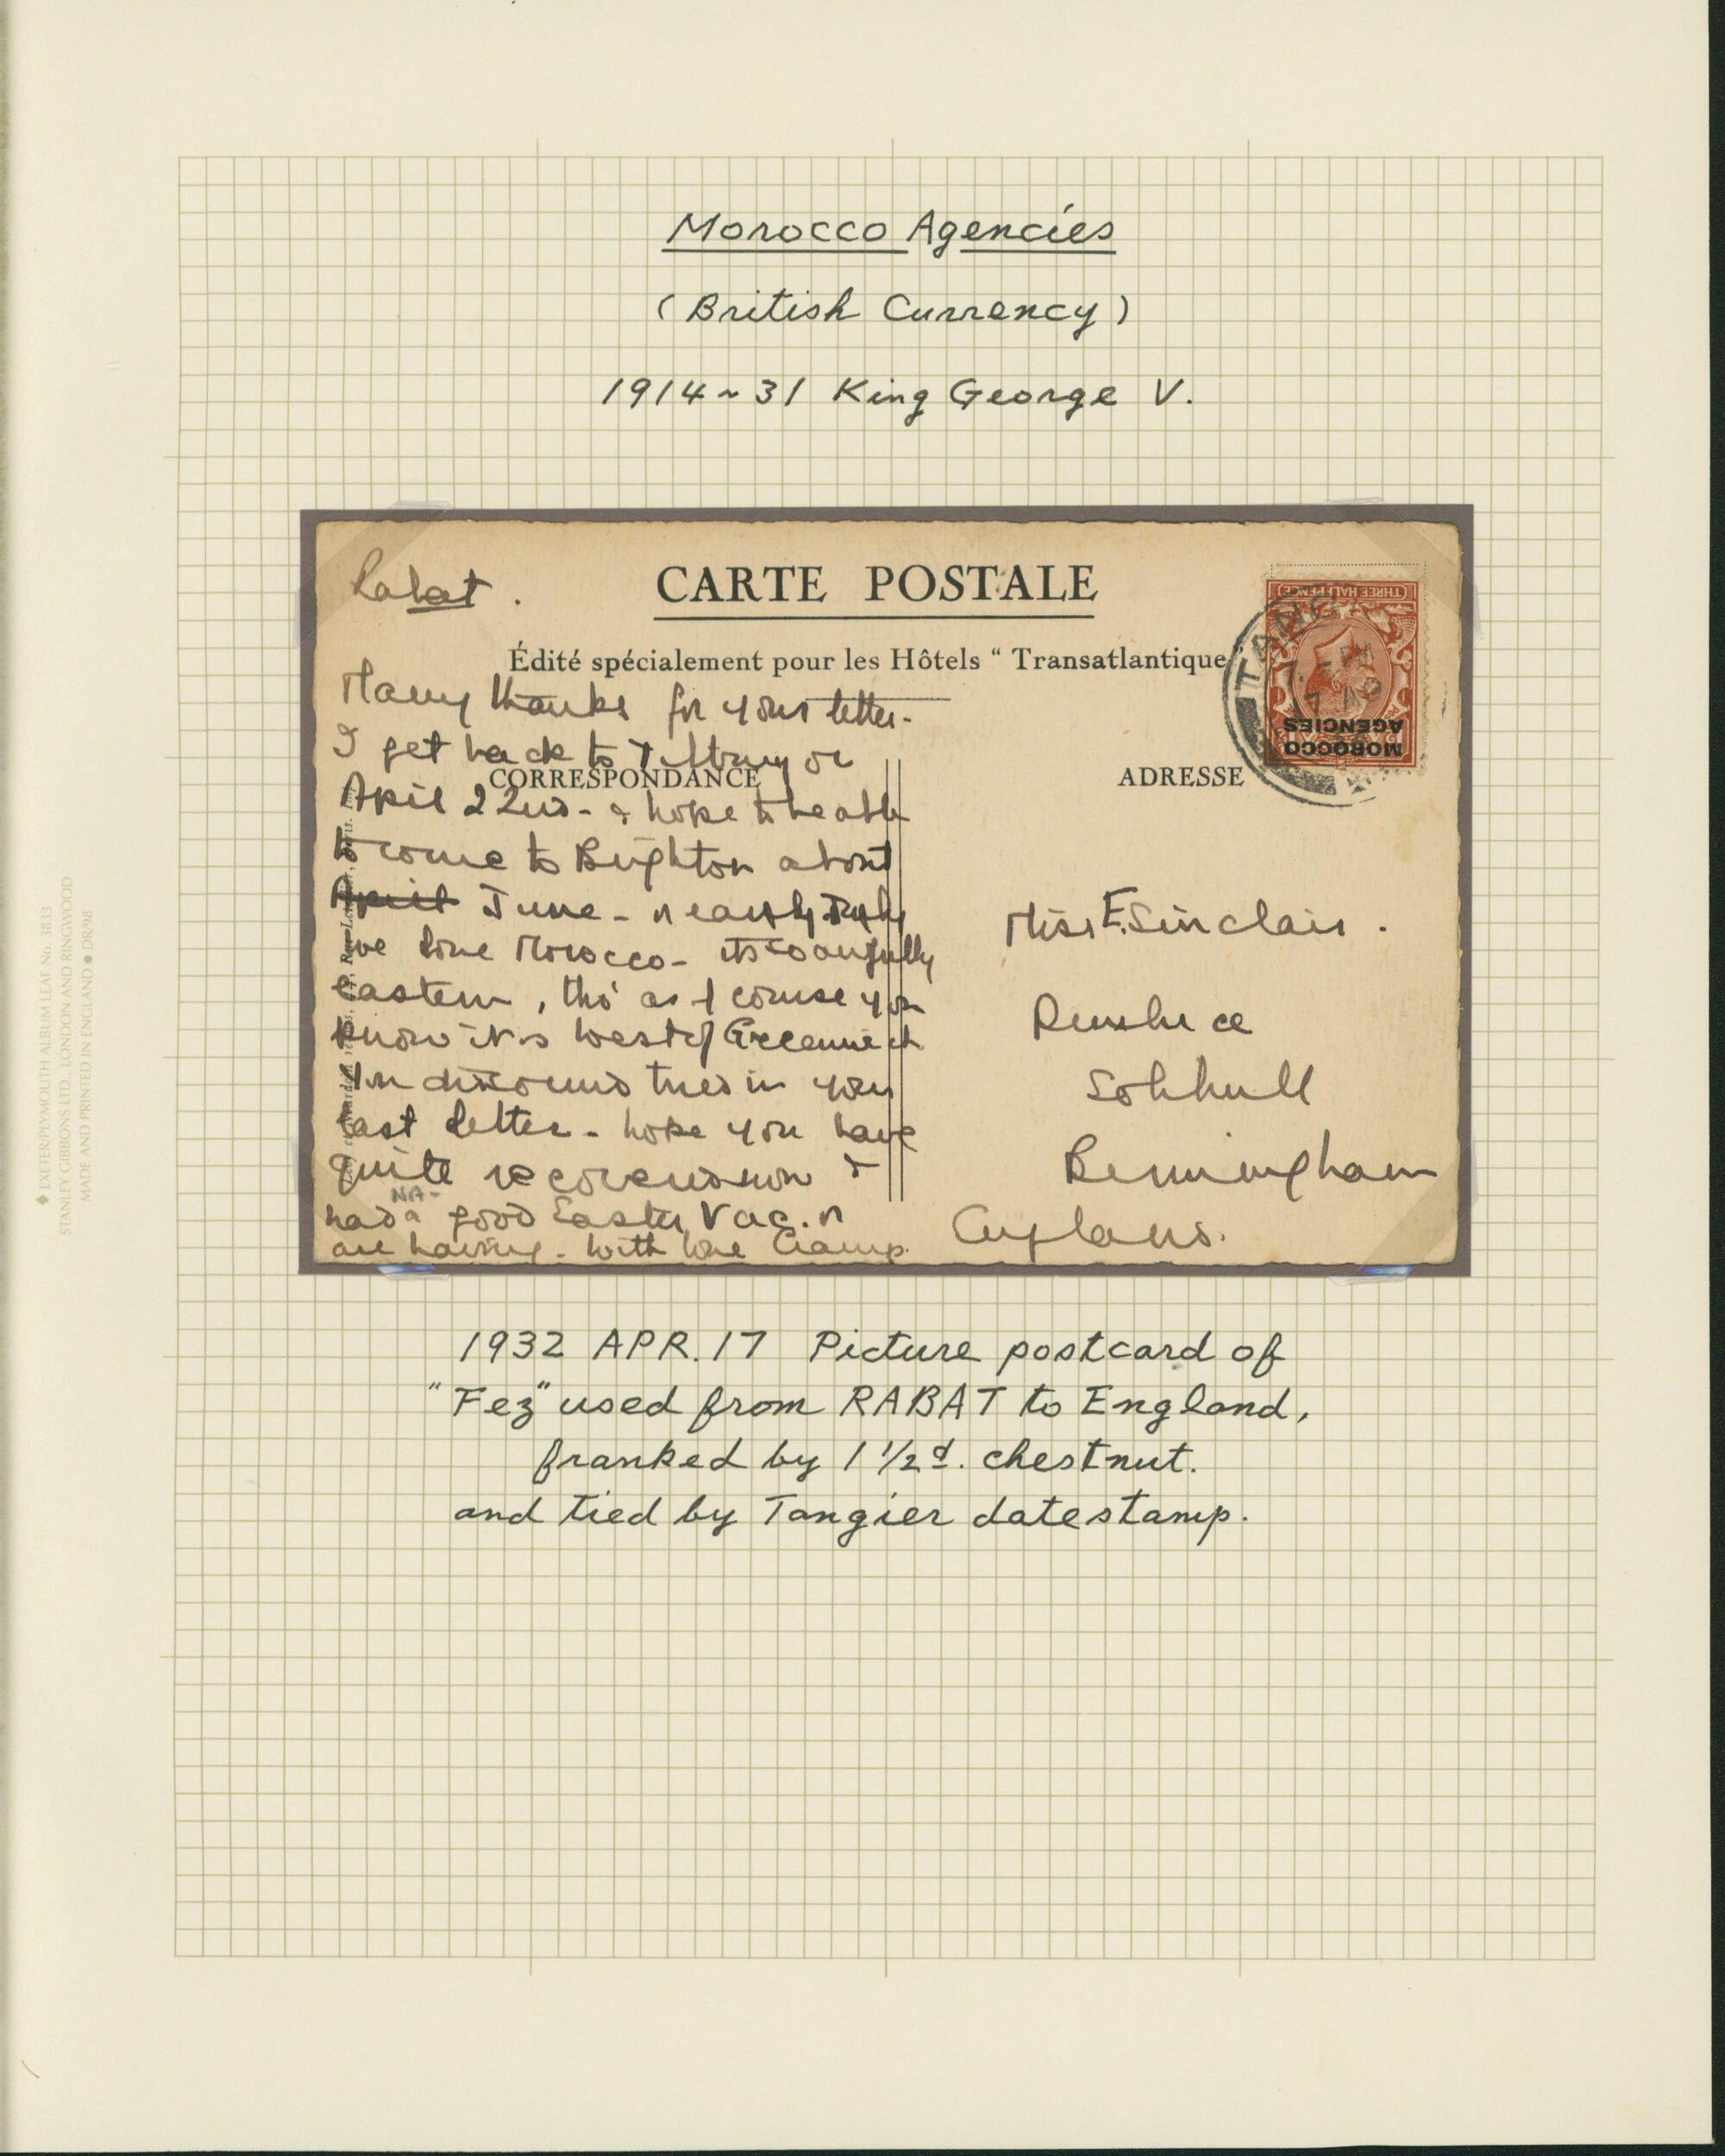 Morocco Agencies
(British Currency)
1914~31 King George V.
Rabat.
CARTE POSTALE
Édité spécialement pour les Hôtels "Transatlantique"
THREE HALFPENCE
MOROCCO
AGENCIES
TANG
17 AP
Many thanks for your letter-
I get back to Tilbury on
CORRESPONDANCE
ADRESSE
April 22nd - & hope to be able
to come to Brighton about
April June - or early July
we love Morocco - its so awfully
eastern, tho' as of course you
know it is west of Greenwich
in your
last letter - hope you have
quite recovered now &
had a good Easter Vac. or
are having - with love
Miss E. Sinclair.
Solihull
Birmingham
England.
1932 APR. 17 Picture postcard of
"Fez" used from RABAT to England,
franked by 1 1/2d. chestnut.
and tied by Tangier datestamp.
♦ EXETER/PLYMOUTH ALBUM LEAF No. 3833
STANLEY GIBBONS LTD., LONDON AND RINGWOOD
MADE AND PRINTED IN ENGLAND ● DR/98